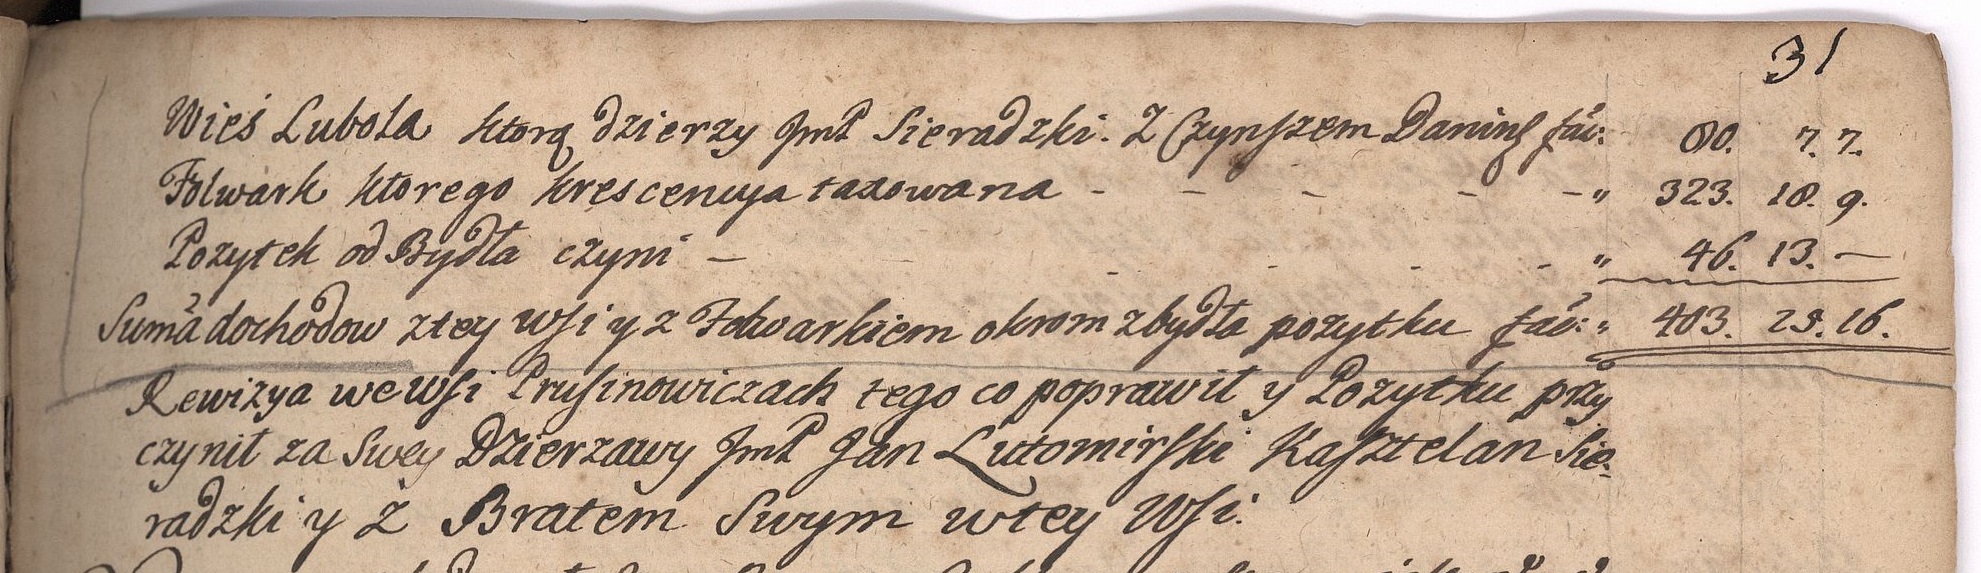 31
Wieś Lubola ktorą dzierzy JmP Sieradzki. Z Czynszem Daninę fac: 80. 7. 7.
Folwark ktorego krescencya taxowana - - - - - „ 323. 18. 9.
Pozytek od Bydła czyni - - - - - „ 46. 13. —
Suma dochodow ztey Wsi y z Folwarkiem okrom z bydła pozytku fac: „ 403. 25. 16.
Rewizya we Wsi Prusinowiczach tego co poprawił y Pozytku przy
czynił za Swey Dzierzawy JmP Jan Lutomirski Kasztelan Sie-
radzki y Z Bratem Swym wtey Wsi.